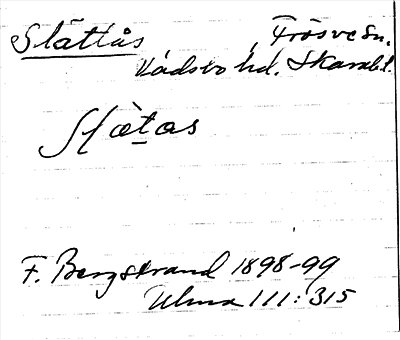 Slättås Frösve sn.
Vadsbo hd. Skarab.l.
Slàtas
F. Bergstrand 1898-99
Ulma 111:315